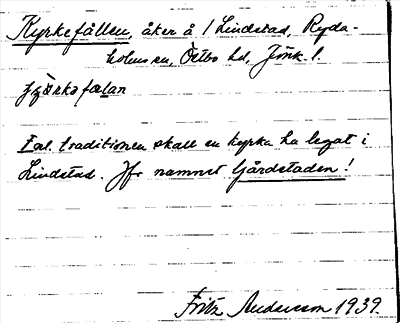 Kyrkefållen, åker å 1 Lindstad, Ryda-
holms sn, Östbo hd, Jönk. l.
Enl. traditionen skall en kyrka ha legat i
Lindstad. Jfr namnet Gårdstaden!
Fritz Andersson 1939.